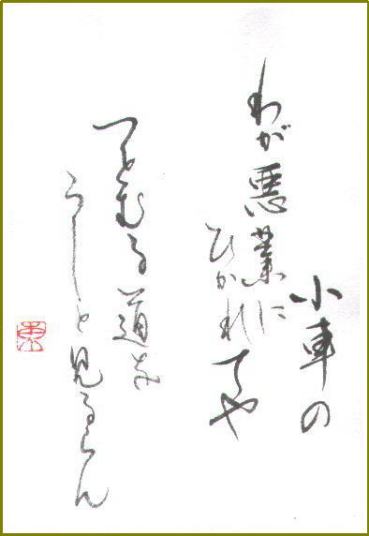 小車の
わが悪業に
ひかれてや
つとむる道を
うしと見るらん
東